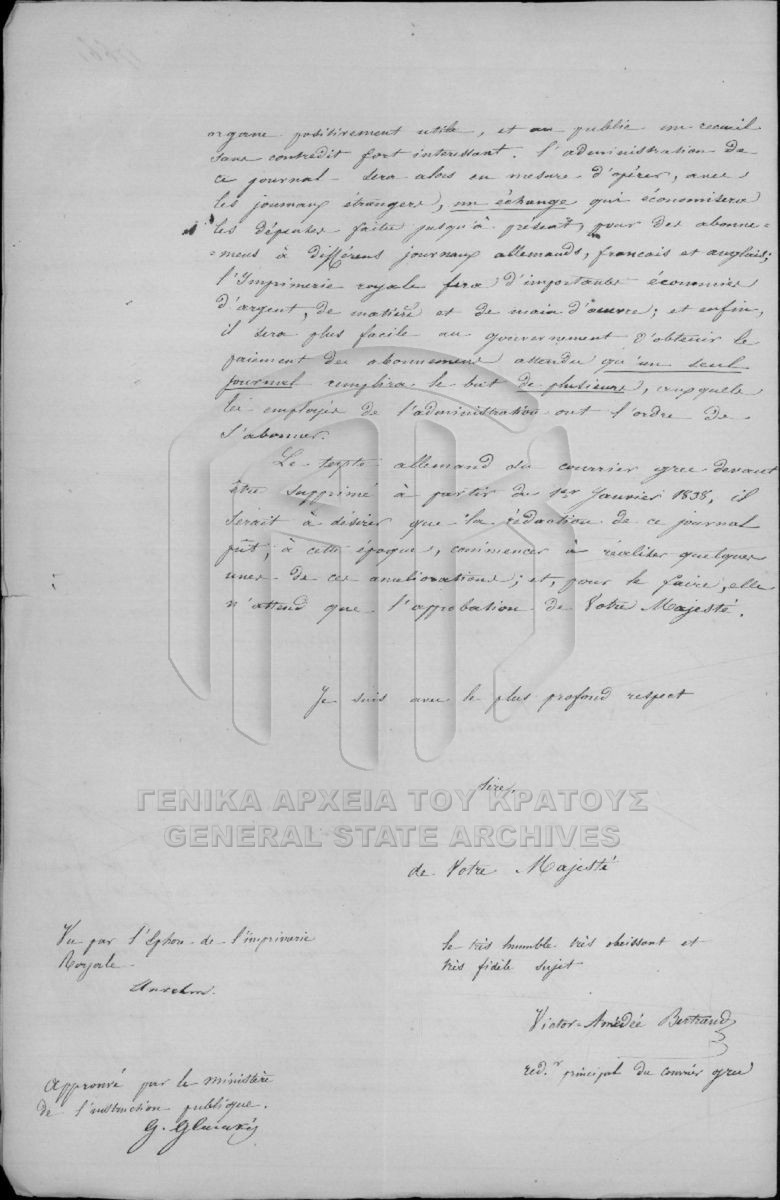 organe positivement utile, et au public un recueil
sans contredit fort interessant. l'administration de
ce journal sera alors en mesure d'opérer, avec
les journaux étrangers, un échange qui économisera
les dépenses faites jusqu'à présent, pour des abonne-
-mens à différens journaux allemands, francais et anglais;
l'Imprimerie royale fera d'importantes économies
d'argent, de matière et de main d'oeuvre; et enfin,
il sera plus facile au gouvernement d'obtenir le
paiement des abonnemens attendu qu'un seul
journal remplira le but de plusieurs, auxquels
les employés de l'administration ont l'ordre de
s'abonner.
Le texte allemand du courrier grec devant
être supprimé à partir du 1er Janvier 1838, il
serait à désirer que la rédaction de ce journal
pût, à cette époque, commencer à réaliser quelques
unes de ces améliorations; et, pour le faire, elle
n'attend que l'approbation de Votre Majesté.
Je suis avec le plus profond respect
Sire,
ΓΕΝΙΚΑ ΑΡΧΕΙΑ ΤΟΥ ΚΡΑΤΟΥΣ
GENERAL STATE ARCHIVES
de Votre Majesté
le très humble très obeissant et
très fidele sujet
Victor-Amédée Bertrand
red.r principal du courrier grec
Vu par l'Ephore de l'imprimerie
Royale.
Approuvé par le ministère
de l'instruction publique.